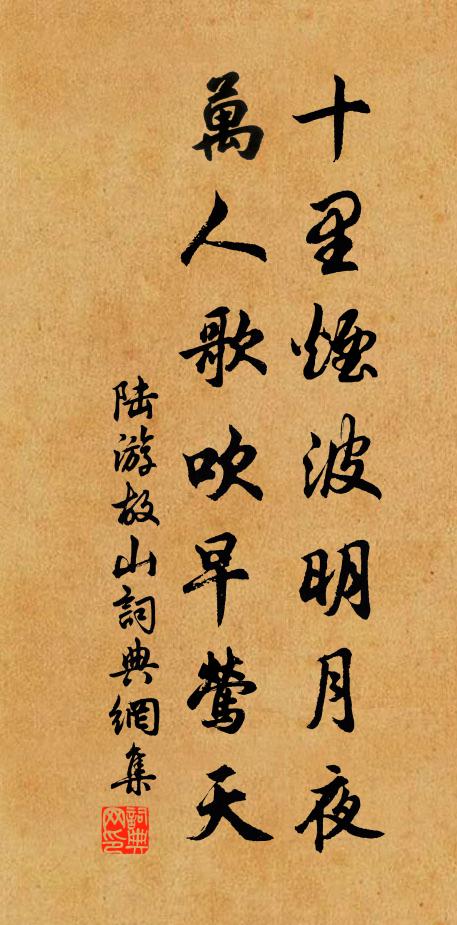 十里煙波明月夜
萬人歌吹早鶯天
陆游故山詞典網集
詞典网印